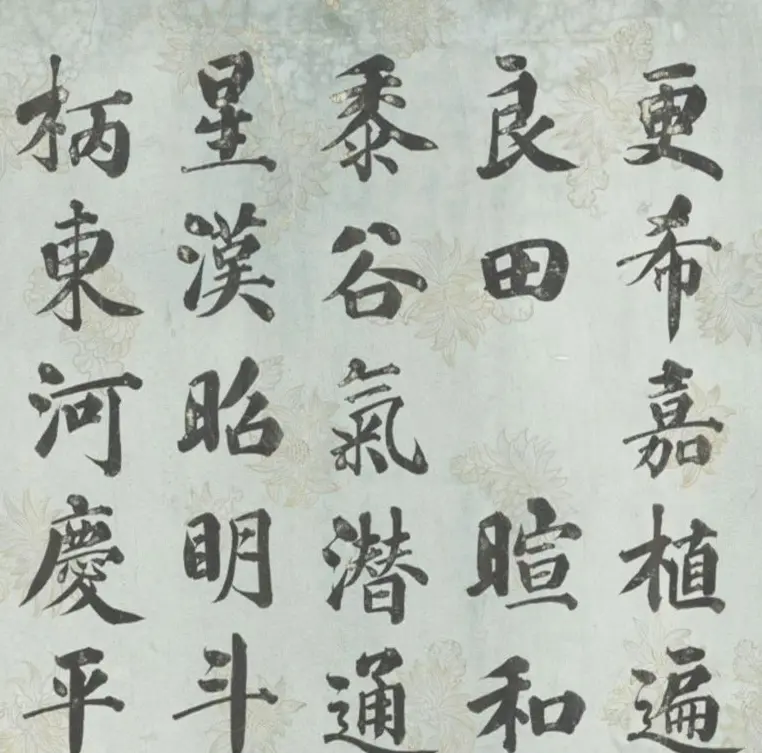 更希嘉植遍
良田 暄和
黍谷氣潛通
星漢昭明斗
柄東河慶平